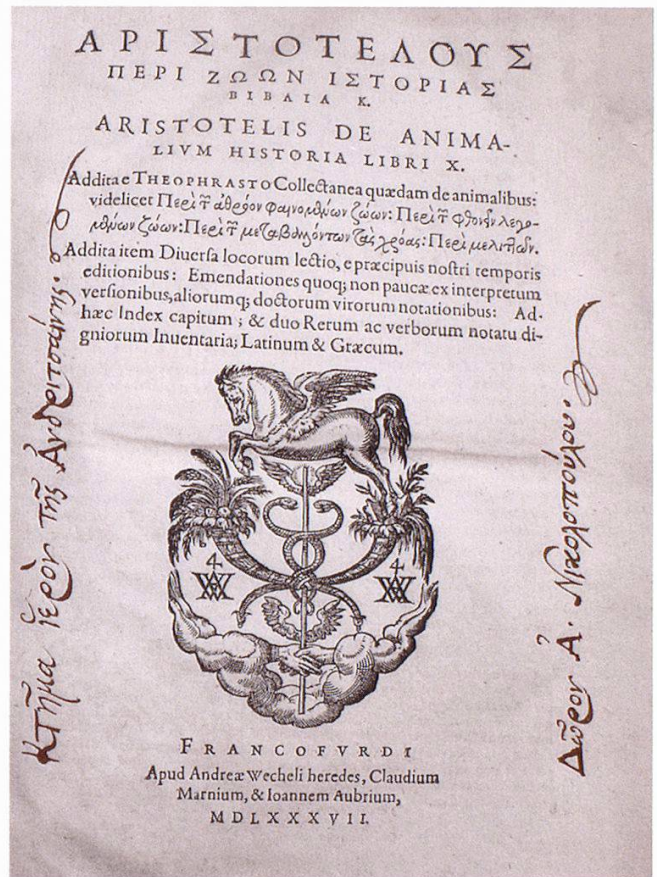 ΑΡΙΣΤΟΤΕΛΟΥΣ
ΠΕΡΙ ΖΩΩΝ ΙΣΤΟΡΙΑΣ
ΒΙΒΛΙΑ Κ.
ARISTOTELIS DE ANIMA-
LIVM HISTORIA LIBRI X.
Additae THEOPHRASTO Collectanea quædam de animalibus:
videlicet Περὶ τ ἀθρόον φαινομένων ζώων: Περὶ τ φθονεῖν λεγο-
μένων ζώων: Περὶ τ μεταβαλλόντων τὰς χρόας: Περὶ μελιττῶν.
Addita item Diuersa locorum lectio, e præcipuis nostri temporis
editionibus: Emendationes quoq; non paucæ ex interpretum
versionibus, aliorumq; doctorum virorum notationibus: Ad-
hæc Index capitum; & duo Rerum ac verborum notatu di-
gniorum Inuentaria; Latinum & Græcum.
Κτῆμα ἱερὸν τῆς Ἀνδριτσάνης.
Δῶρον Ἀ. Νικολοπούλου.
FRANCOFVRDI
Apud Andreæ Wecheli heredes, Claudium
Marnium, & Ioannem Aubrium,
MDLXXXVII.